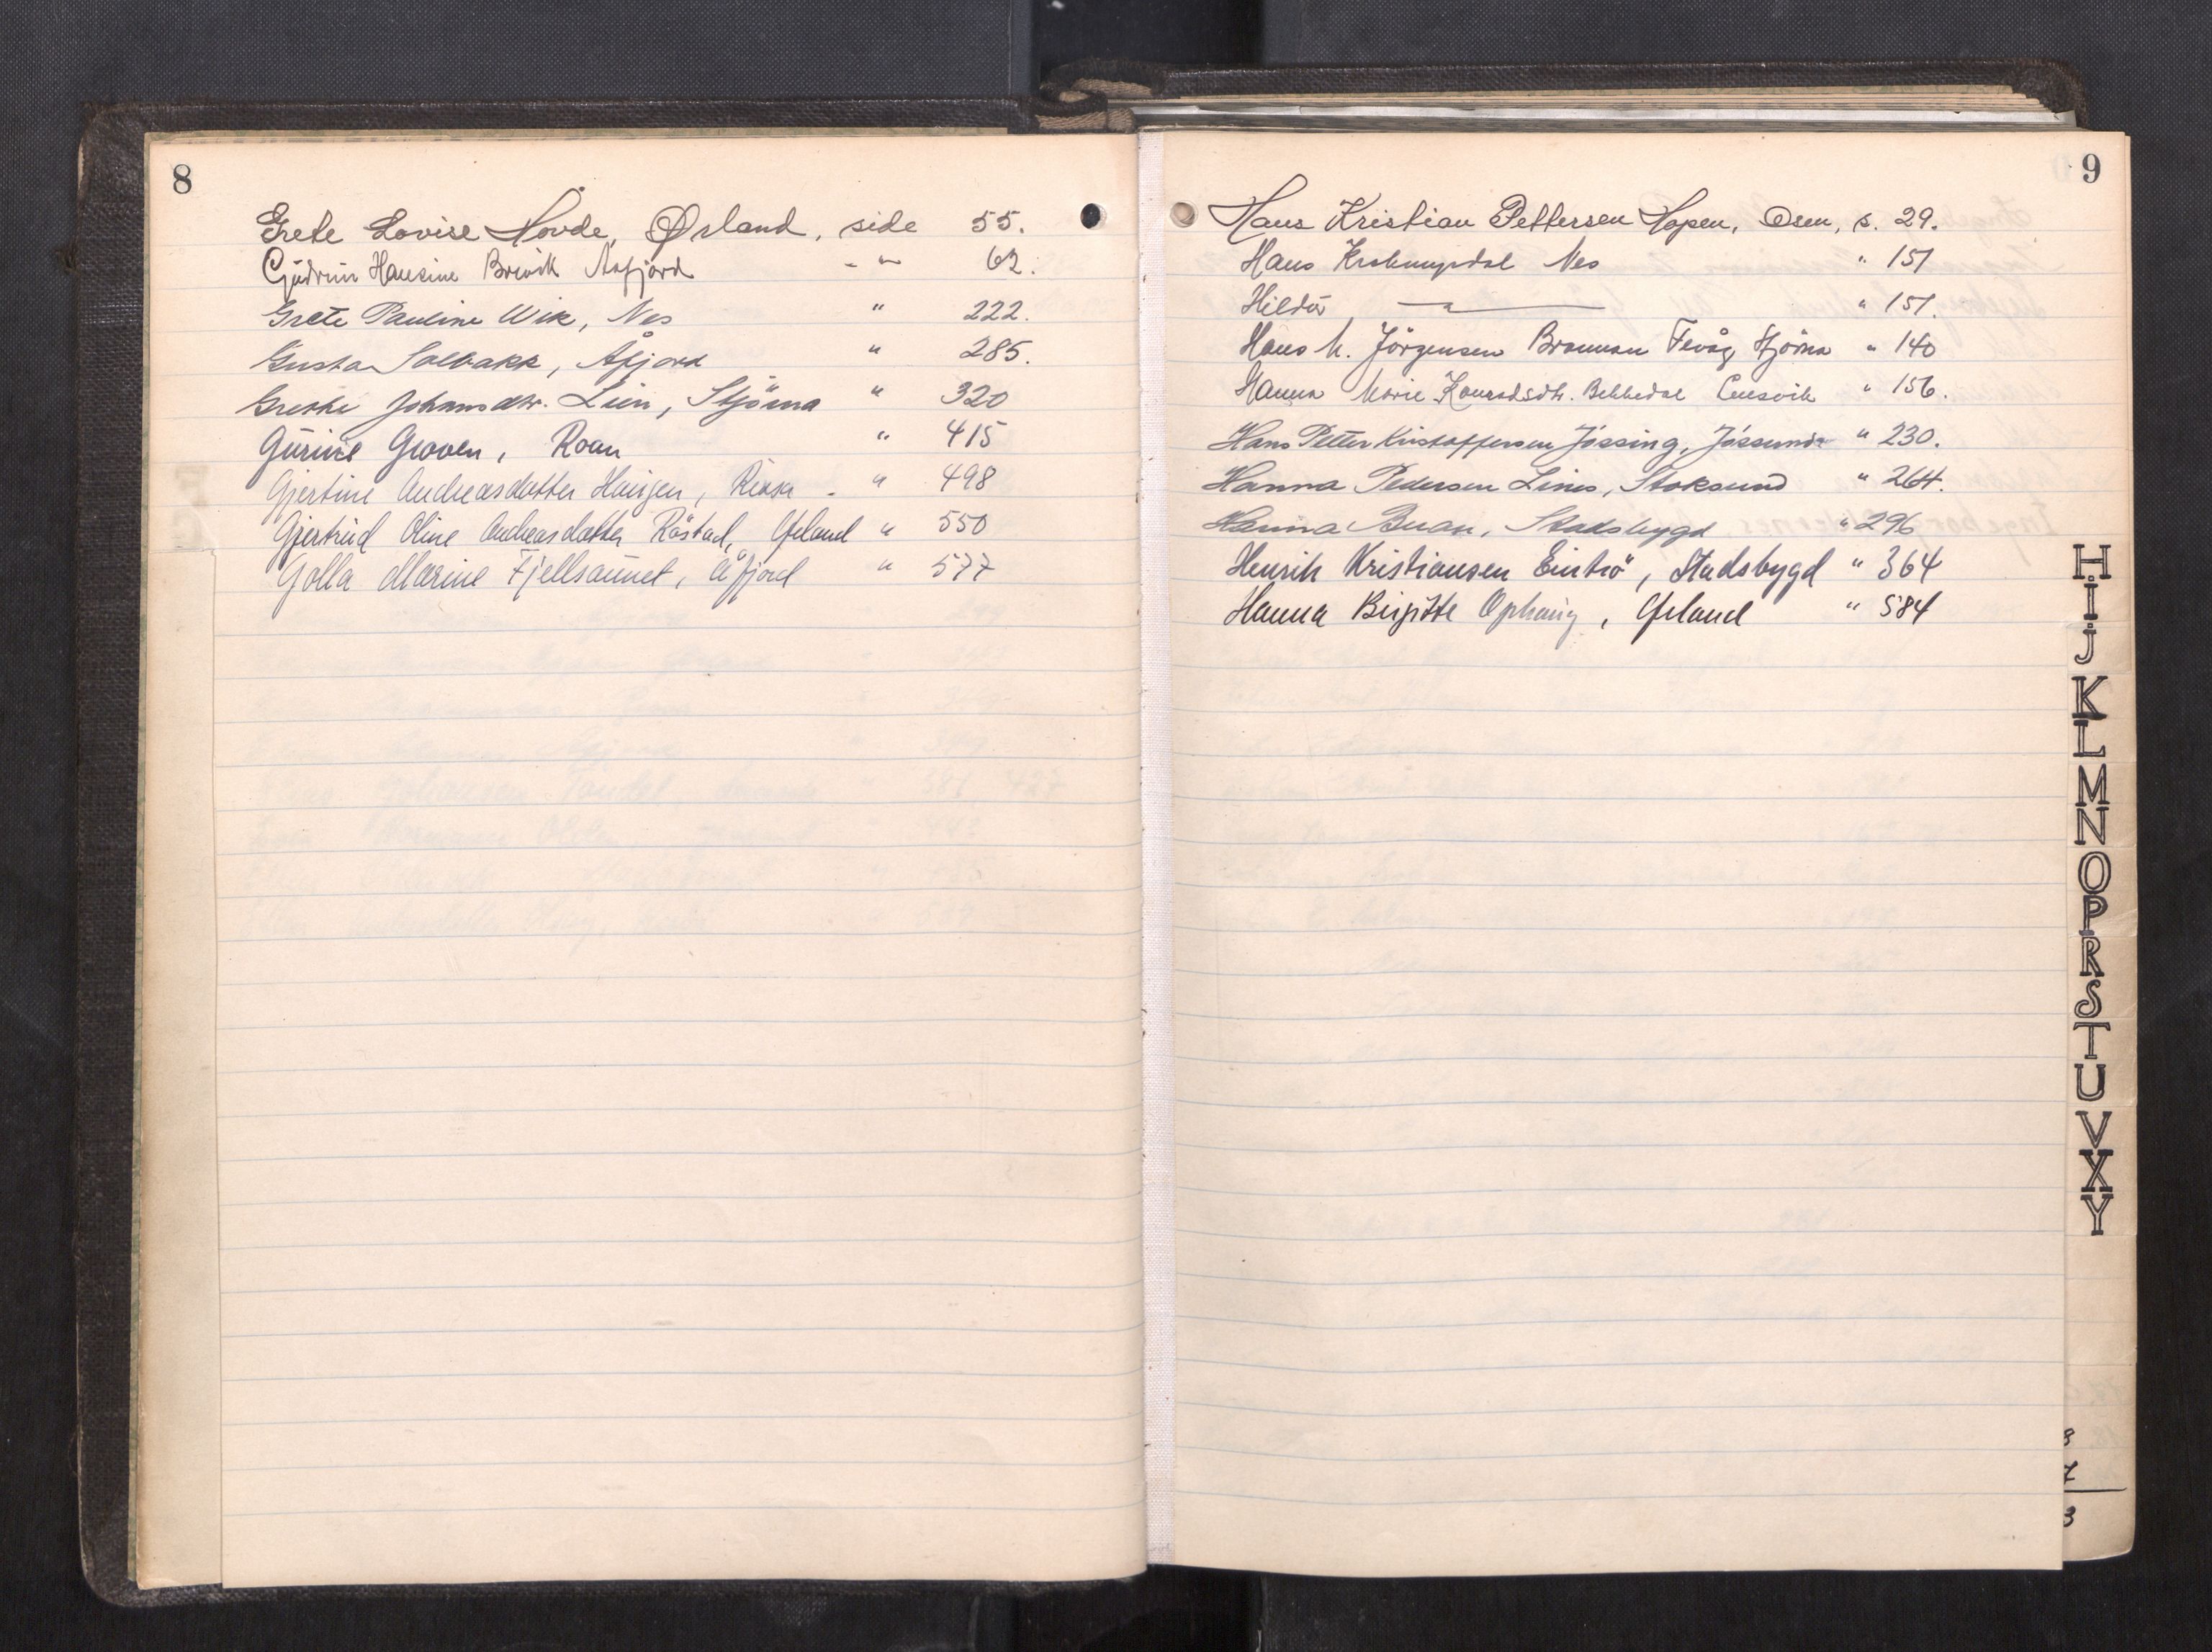 8
Grete Lovise Hovde, Ørland, side 55.
Gudrun Hansine Brevik Aafjord - " - 62.
Grete Pauline Wik, Nes " 222.
Gusta Solbakk, Åfjord " 285.
Grethe Johansdtr. Lien, Stjörna " 320
Gurine Groven, Roan " 415
Gjertine Andreasdatter Haugen, Rissa - " 498
Gjertrud Oline Andreasdatter Röstad, Ørland " 550
Golla Marine Fjellsaunet, Åfjord " 577
9
Hans Kristian Pettersen Hopen, Osen, s. 29.
Hans Nes " 151
Hilda — " — " 151.
Hans M. Jörgensen Fevåg, Stjörna " 140
Hanna Marie Konradsdtr. Lensvik " 156.
Hans Petter Kristoffersen Jössing, Jössund " 230.
Hanna Pedersen Lines, Stoksund " 264.
Hanna Buan, Stadsbygd " 296
Henrik Kristiansen Eintrö, Stadsbygd " 364
Hanna Birgitte Ophaug, Ørland " 584
H
I
J
K
L
M
N
O
P
R
S
T
U
V
X
Y
8
3